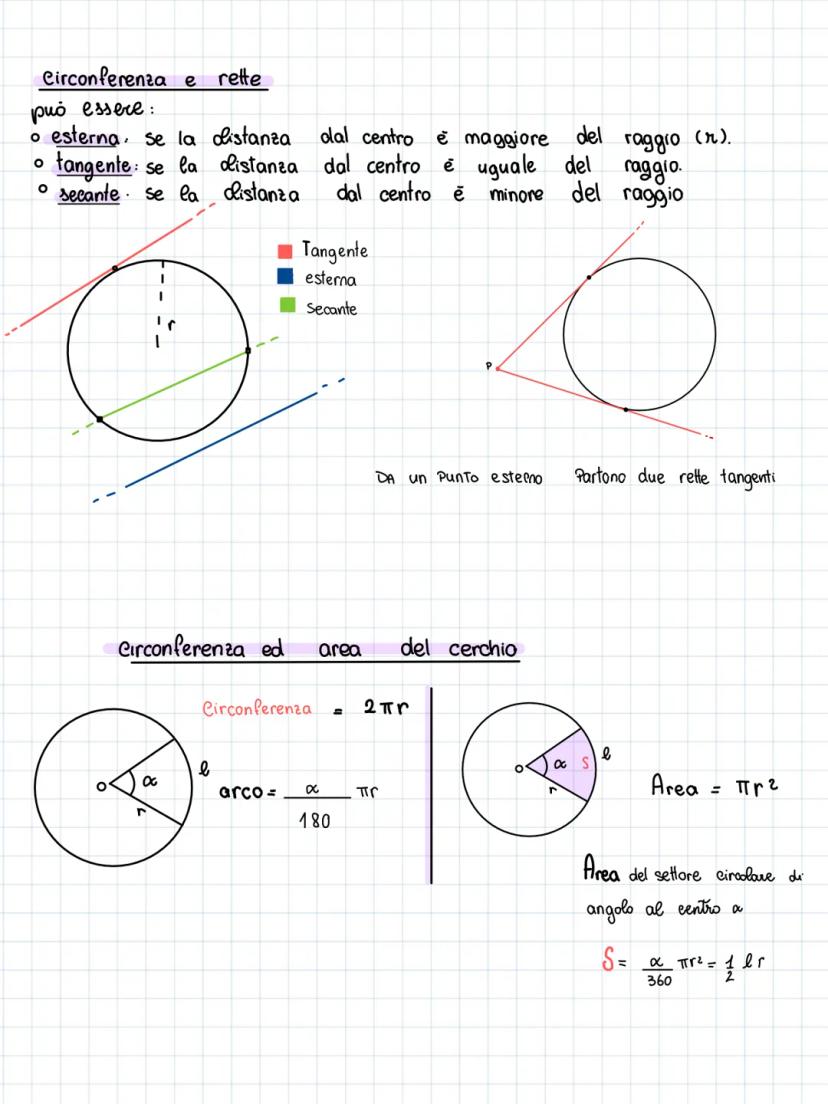 Circonferenza e rette
può essere:
o esterna. se la distanza dal centro è maggiore del raggio (r).
o tangente: se la distanza dal centro è uguale del raggio.
o secante. se la distanza dal centro è minore del raggio
Tangente
esterna
secante
r
P
DA un PUNTO esterno Partono due rette tangenti
Circonferenza ed area del cerchio
Circonferenza = 2πr
O α r l
arco = α/180 πr
O α S r l
Area = πr²
Area del settore circolare di
angolo al centro α
S = α/360 πr² = 1/2 l r